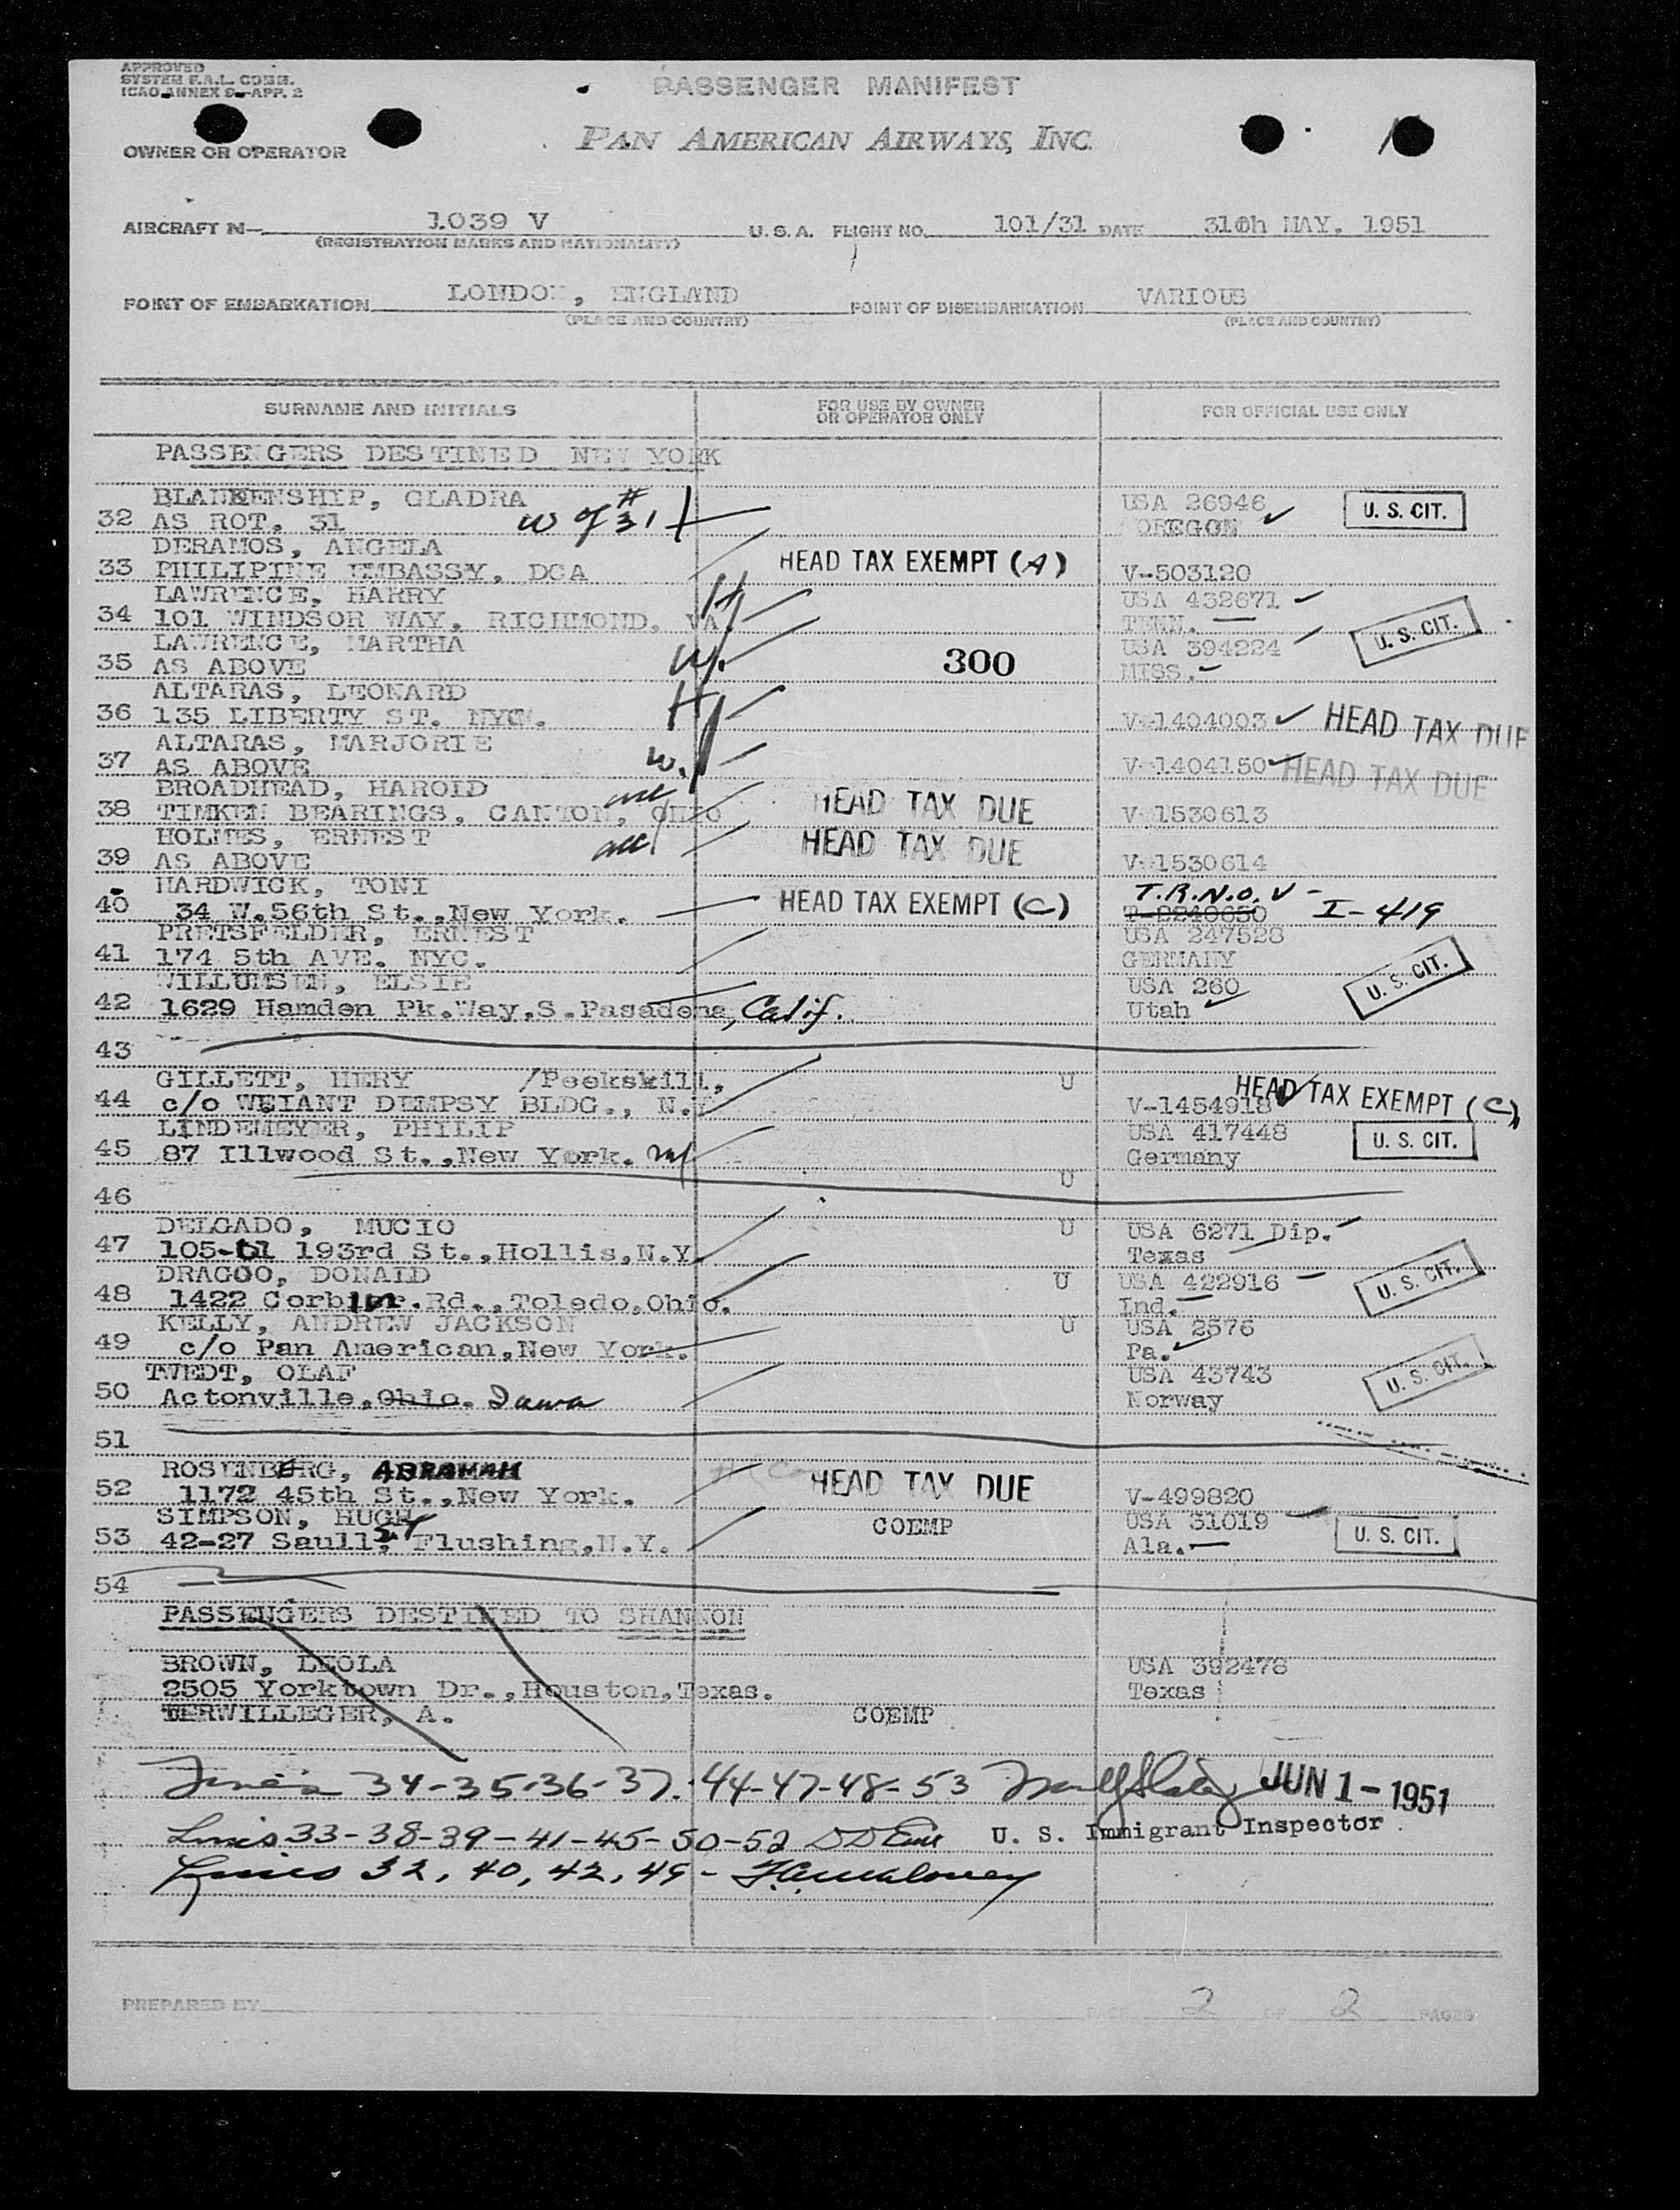 APPROVED
SYSTEM F.A.L. COMM.
ICAO ANNEX 9-APP. 2
PASSENGER MANIFEST
OWNER OR OPERATOR
PAN AMERICAN AIRWAYS, INC.
AIRCRAFT N— 1039 V U.S.A. FLIGHT NO. 101/31 DATE 31th MAY. 1951
(REGISTRATION MARKS AND NATIONALITY)
POINT OF EMBARKATION LONDON, ENGLAND POINT OF DISEMBARKATION VARIOUS
(PLACE AND COUNTRY) (PLACE AND COUNTRY)
SURNAME AND INITIALS FOR USE BY OWNER OR OPERATOR ONLY FOR OFFICIAL USE ONLY
PASSENGERS DESTINED NEW YORK
BLANKENSHIP, GLADRA USA 26946 U. S. CIT.
32 AS ROT. 31 W of #31 OREGON
DERAMOS, ANGELA HEAD TAX EXEMPT (A)
33 PHILIPINE EMBASSY, DCA V-503120
LAWRENCE, HARRY H USA 432671
34 101 WINDSOR WAY, RICHMOND, VA. TENN. U. S. CIT.
LAWRENCE, MARTHA USA 394224
35 AS ABOVE W. 300 MISS.
ALTARAS, LEONARD H
36 135 LIBERTY ST. NYC. V-1404003 HEAD TAX DUE
ALTARAS, MARJORIE
37 AS ABOVE W. V-1404150 HEAD TAX DUE
BROADHEAD, HAROLD acc HEAD TAX DUE
38 TIMKEN BEARINGS, CANTON, OHIO V-1530613
HOLMES, ERNEST acc HEAD TAX DUE
39 AS ABOVE V-1530614
HARDWICK, TONI HEAD TAX EXEMPT (C) T.R.N.O. V-
40 34 W.56th St.,New York. T-2240650 I-419
PRETSFELDER, ERNEST USA 247528
41 174 5th AVE. NYC. GERMANY
WILLUMSEN, ELSIE USA 260 U. S. CIT.
42 1629 Hamden Pk.Way,S.Pasadena, Calif. Utah
43
GILLETT, HERY /Peekskill, U HEAD TAX EXEMPT (C)
44 c/o WEIANT DEMPSY BLDG., N.Y V-1454918
LINDEMEYER, PHILIP USA 417448 U. S. CIT.
45 87 Illwood St.,New York. Germany
U
46
DELGADO, MUCIO U USA 6271 Dip.
47 105-01 193rd St.,Hollis,N.Y. Texas
DRAGOO, DONALD U USA 422916 U. S. CIT.
48 1422 Corbin.Rd.,Toledo,Ohio. Ind.
KELLY, ANDREW JACKSON U USA 2576
49 c/o Pan American,New York. Pa.
TWEDT, OLAF USA 43743 U. S. CIT.
50 Actonville,Ohio. Iowa Norway
51
ROSENBERG, ABRAHAM HEAD TAX DUE
52 1172 45th St.,New York. V-499820
SIMPSON, HUGH COEMP USA 31019 U. S. CIT.
53 42-27 Saull, ST Flushing,N.Y. Ala.
54
PASSENGERS DESTINED TO SHANNON
BROWN, LEOLA USA 392478
2505 Yorktown Dr.,Houston,Texas. Texas
TERWILLEGER, A. COEMP
34-35-36-37-44-47-48-53 JUN 1-1951
Lines 33-38-39-41-45-50-52
U. S. Immigrant Inspector
Lines 32, 40, 42, 49-
PREPARED BY PAGE 2 OF 2 PAGES